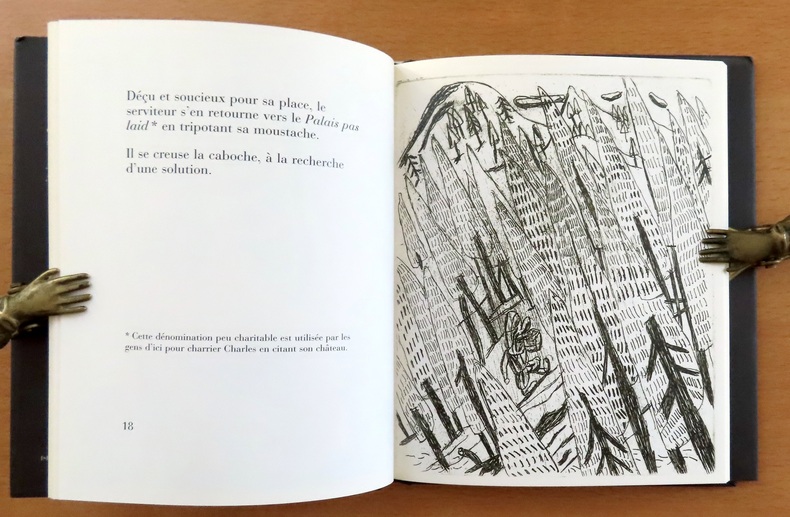 Déçu et soucieux pour sa place, le
serviteur s'en retourne vers le Palais pas
laid* en tripotant sa moustache.
Il se creuse la caboche, à la recherche
d'une solution.
* Cette dénomination peu charitable est utilisée par les
gens d'ici pour charrier Charles en citant son château.
18